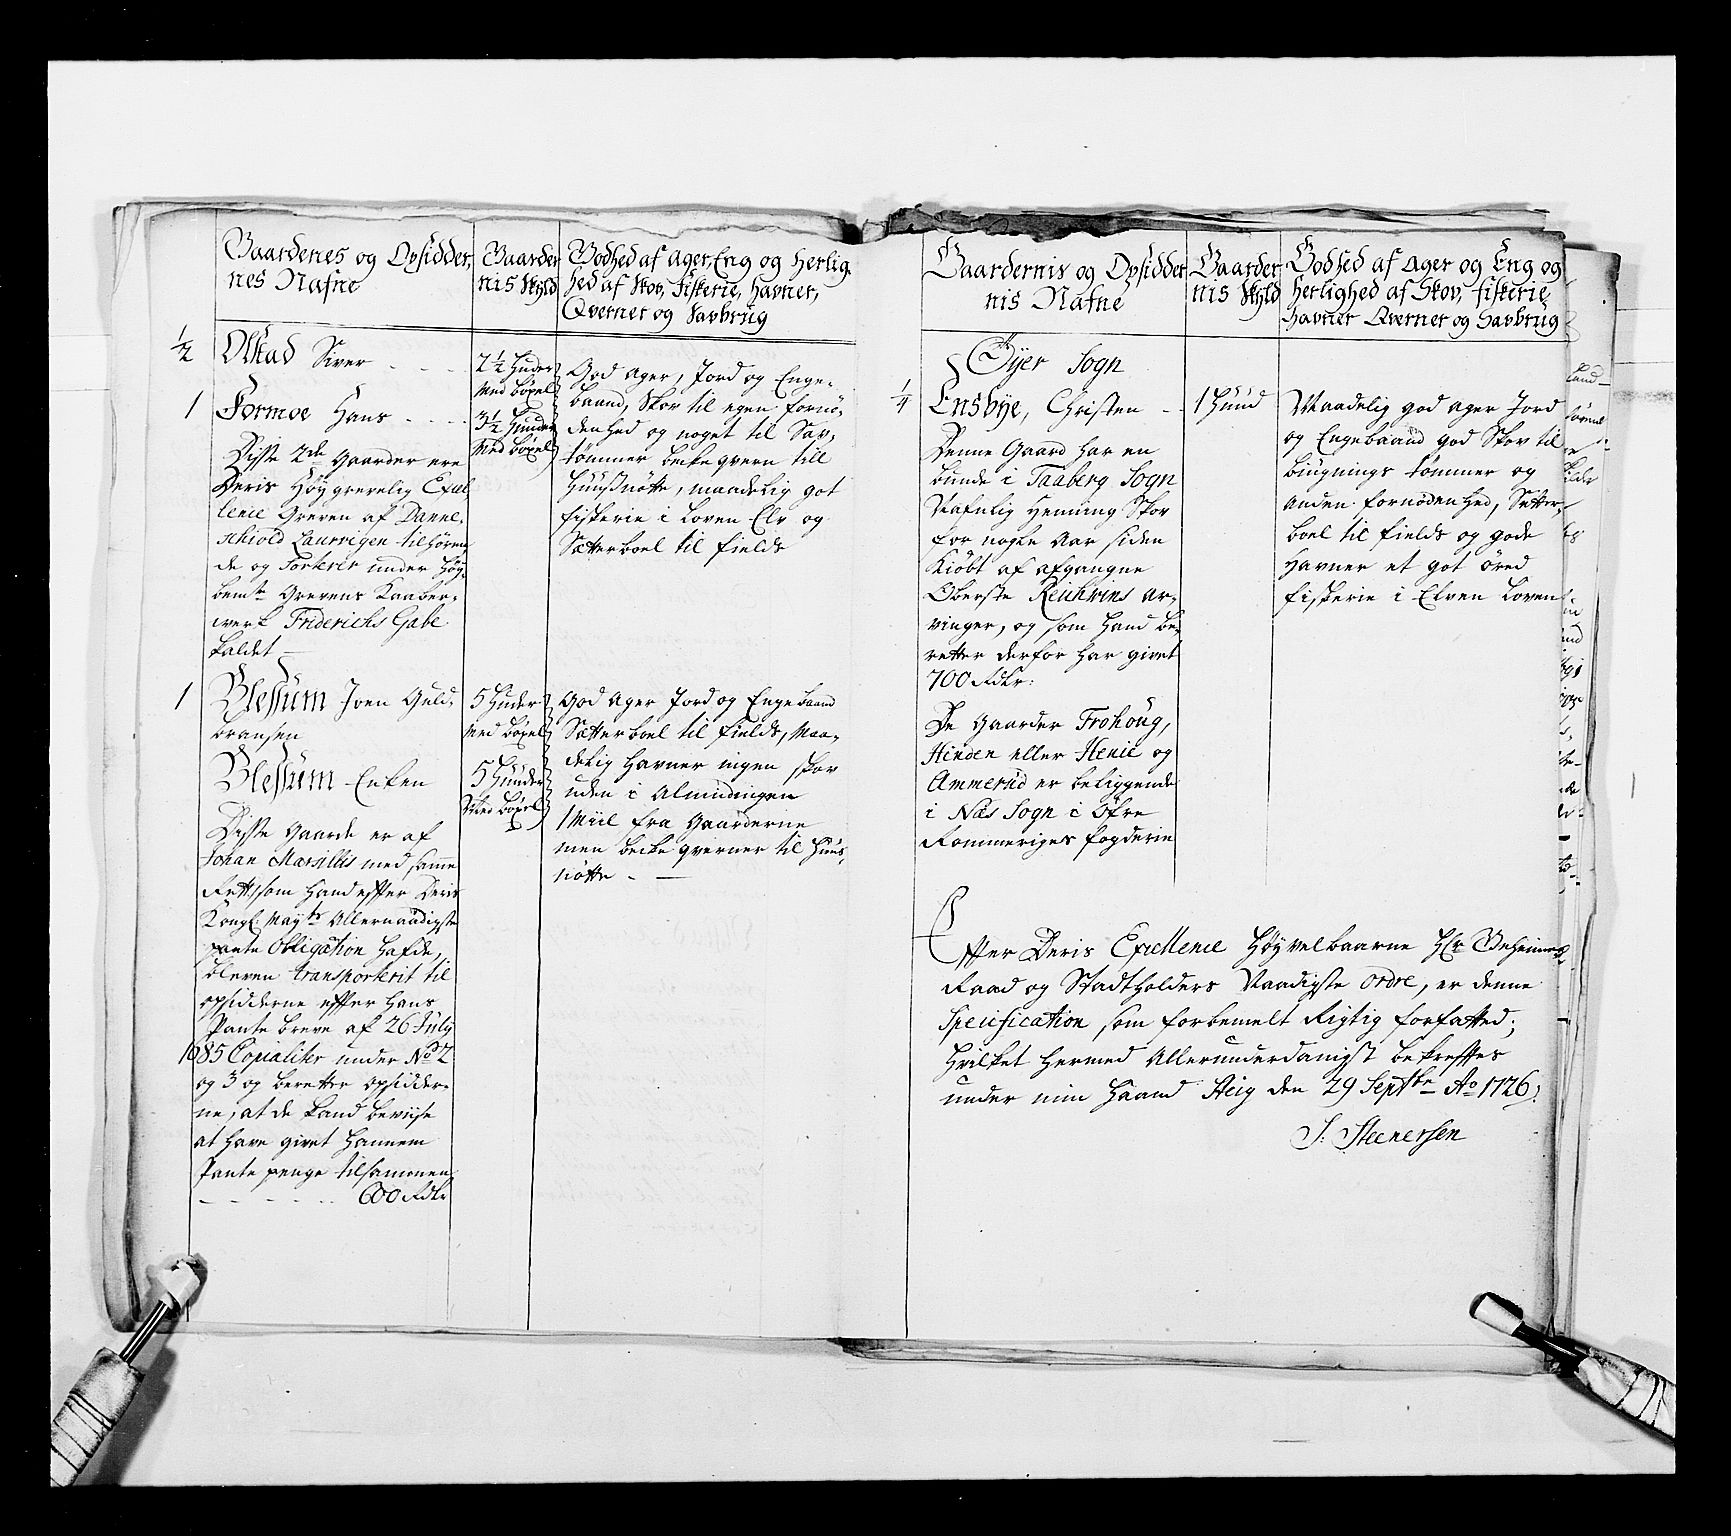 Gaardenes og Opsidder,
nes Nafne
Gaarder
nis Skyld
Godhed af Ager, Eng og Herlig,
hed af Skov, fiskerie, havner,
Qverner og Savbrug
1/2
Olstad Siver - - -
2 1/2 Huder
med böxel
1
Formoe Hans - - - -
3 1/2 Huder
med böxel
God Ager, Jord og Enge-
baand, Skov til egen fornö-
denhed og noget til Sav-
tömmer becke qvern till
Huusnötte, maadelig got
fiskerie i Loven Elv og
Sætterboel til fields
Disse 2de Gaarder ere
Deris Höygrevelig Excel
lence Greven af Danne-
schiold Laurvigen tilhören,
de og sorterer under höy-
bemte Grevens Kaaber-
werk Friderichs Gabe
kaldet —
1
Blessum Joen Guld-
bransen
5 Huder
med böxel
Blessum Enken
5 Huuder
med böxel
God Ager Jord og Engebaand
Sætterboel til fields, Maa-
delig havner ingen skov
uden i Almindingen
1 Miil fra Gaarderne
men becke qverner til Huus,
nötte - —
Disse Gaarde er af
Johan Marsillis med samme
Rett som hand efter Deris
Kongl: Mayts Allernaadigste
pante Obligation hafde,
bleven transporterit til
opsidderne efter hans
Pante breve af 26 July
1685 Copialiter under No 2
og 3 og beretter opsidder-
ne, at de kand beviise
at have givet hannem
Pante penge tilsammen
- - - - - - 600 Rdlr
Gaardernis og Opsidder
nis Nafne
Gaarder
nis Skyld
Godhed af Ager og Eng og
herlighed af Skov, fiskerie
havner Qverner og Savbrug
Öyer Sogn
1/4
Ensbye, Christen - -
1 Huud
Maadelig god ager Jord
og Engebaand god Skov til
biugnings tömmer og
anden fornödenhed, Sætter-
boel til fields og gode
havner et got öred
fiskerie i Elven Loven
Denne Gaard har en
bunde i Faaberg Sogn
Nafnlig Hemming Skov
for nogle Aar siden
Kiöbt af afgangne
Oberste Reichvins Ar-
vinger, og som hand be-
retter derfor har givet
700 Rdlr:
De Gaarder Frohoug,
Hinden eller Henie og
Ammerud er beliggende
i Næs Sogn i Öfre
Rommeriges fogderie
Efter Deris Excellence Höyvelbaarne Hr Geheime
Raad og Stadtholders Naadigste Ordre, er denne
Specification som forbemelt Rigtig forfatted;
hvilket hermed Allerunderdanigst bekreftes
under min Haand Steig den 29 Septbr Ao 1726.
S: Steenersen